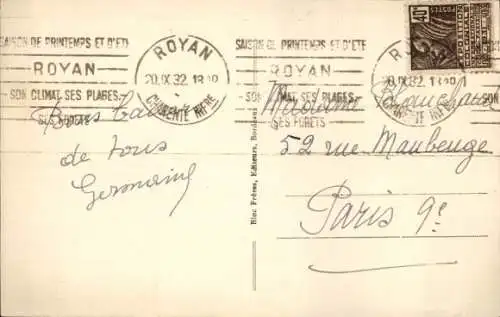 SAISON DE PRINTEMPS ET D'ETE
ROYAN
SON CLIMAT, SES PLAGES
SES FORETS
ROYAN
20.IX.32. 18
CHARENTE INFRE
SAISON DE PRINTEMPS ET D'ETE
ROYAN
SON CLIMAT, SES PLAGES
SES FORETS
20.IX.32.
POSTES
40c
Bons baisers
de tous
Germaine
Bloc Frères, Editeurs, Bordeaux
Madame
52 rue Maubeuge
Paris 9e